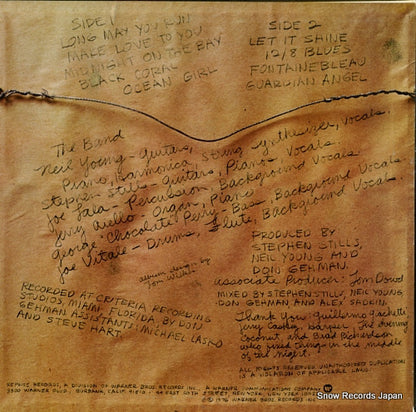 SIDE 1
LONG MAY YOU RUN
MAKE LOVE TO YOU
MIDNIGHT ON THE BAY
BLACK CORAL
OCEAN GIRL
SIDE 2
LET IT SHINE
12/8 BLUES
FONTAINEBLEAU
GUARDIAN ANGEL
The Band
Neil Young - Guitars,
Piano, Harmonica, String Synthesizer, Vocals.
Stephen Stills - Guitars, Piano, Vocals
Joe Lala - Percussion, Background Vocals.
Jerry Aiello - Organ, Piano
George "Chocolate" Perry - Bass, Background Vocals.
Joe Vitale - Drums, Flute, Background Vocals.
album design by
Tom Wilkes
PRODUCED BY
STEPHEN STILLS,
NEIL YOUNG AND
DON GEHMAN.
Associate Producer: Tom Dowd
MIXED BY STEPHEN STILLS, NEIL YOUNG,
DON GEHMAN, AND ALEX SADKIN.
RECORDED AT CRITERIA RECORDING
STUDIOS, MIAMI, FLORIDA, BY DON
GEHMAN ASSISTANTS: MICHAEL LASKO
AND STEVE HART.
Thank you: Guillermo Giachetti
Jerry the
Coconut and Brad Richardson
who fixed things in the middle
of the night.
ALL RIGHTS RESERVED UNAUTHORIZED DUPLICATION
IS A VIOLATION OF APPLICABLE LAWS.
REPRISE RECORDS, A DIVISION OF WARNER BROS. RECORDS INC., A WARNER COMMUNICATIONS COMPANY
3300 WARNER BLVD., BURBANK, CALIF. 91510 • 44 EAST 50TH STREET, NEW YORK, NEW YORK
© 1976 WARNER BROS. RECORDS INC.
Snow Records Japan
www.snowrecords.jp